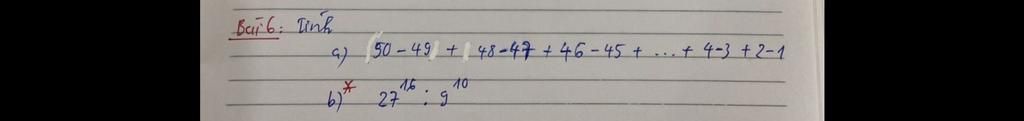 Bài 6: Tính
a) 50 - 49 + 48 - 47 + 46 - 45 + ... + 4 - 3 + 2 - 1
b)* 27¹⁶ : 9¹⁰